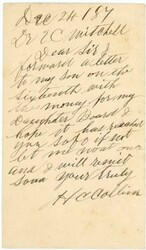 Dec 24 187
Dr E C Mitchell
Dear Sir I
forward a letter
to my son on the
sixteenth with
the money for my
Daughter Board I
hope it has reached
you safe if not
let me now
and I will remit
Yours truly
H A Collier